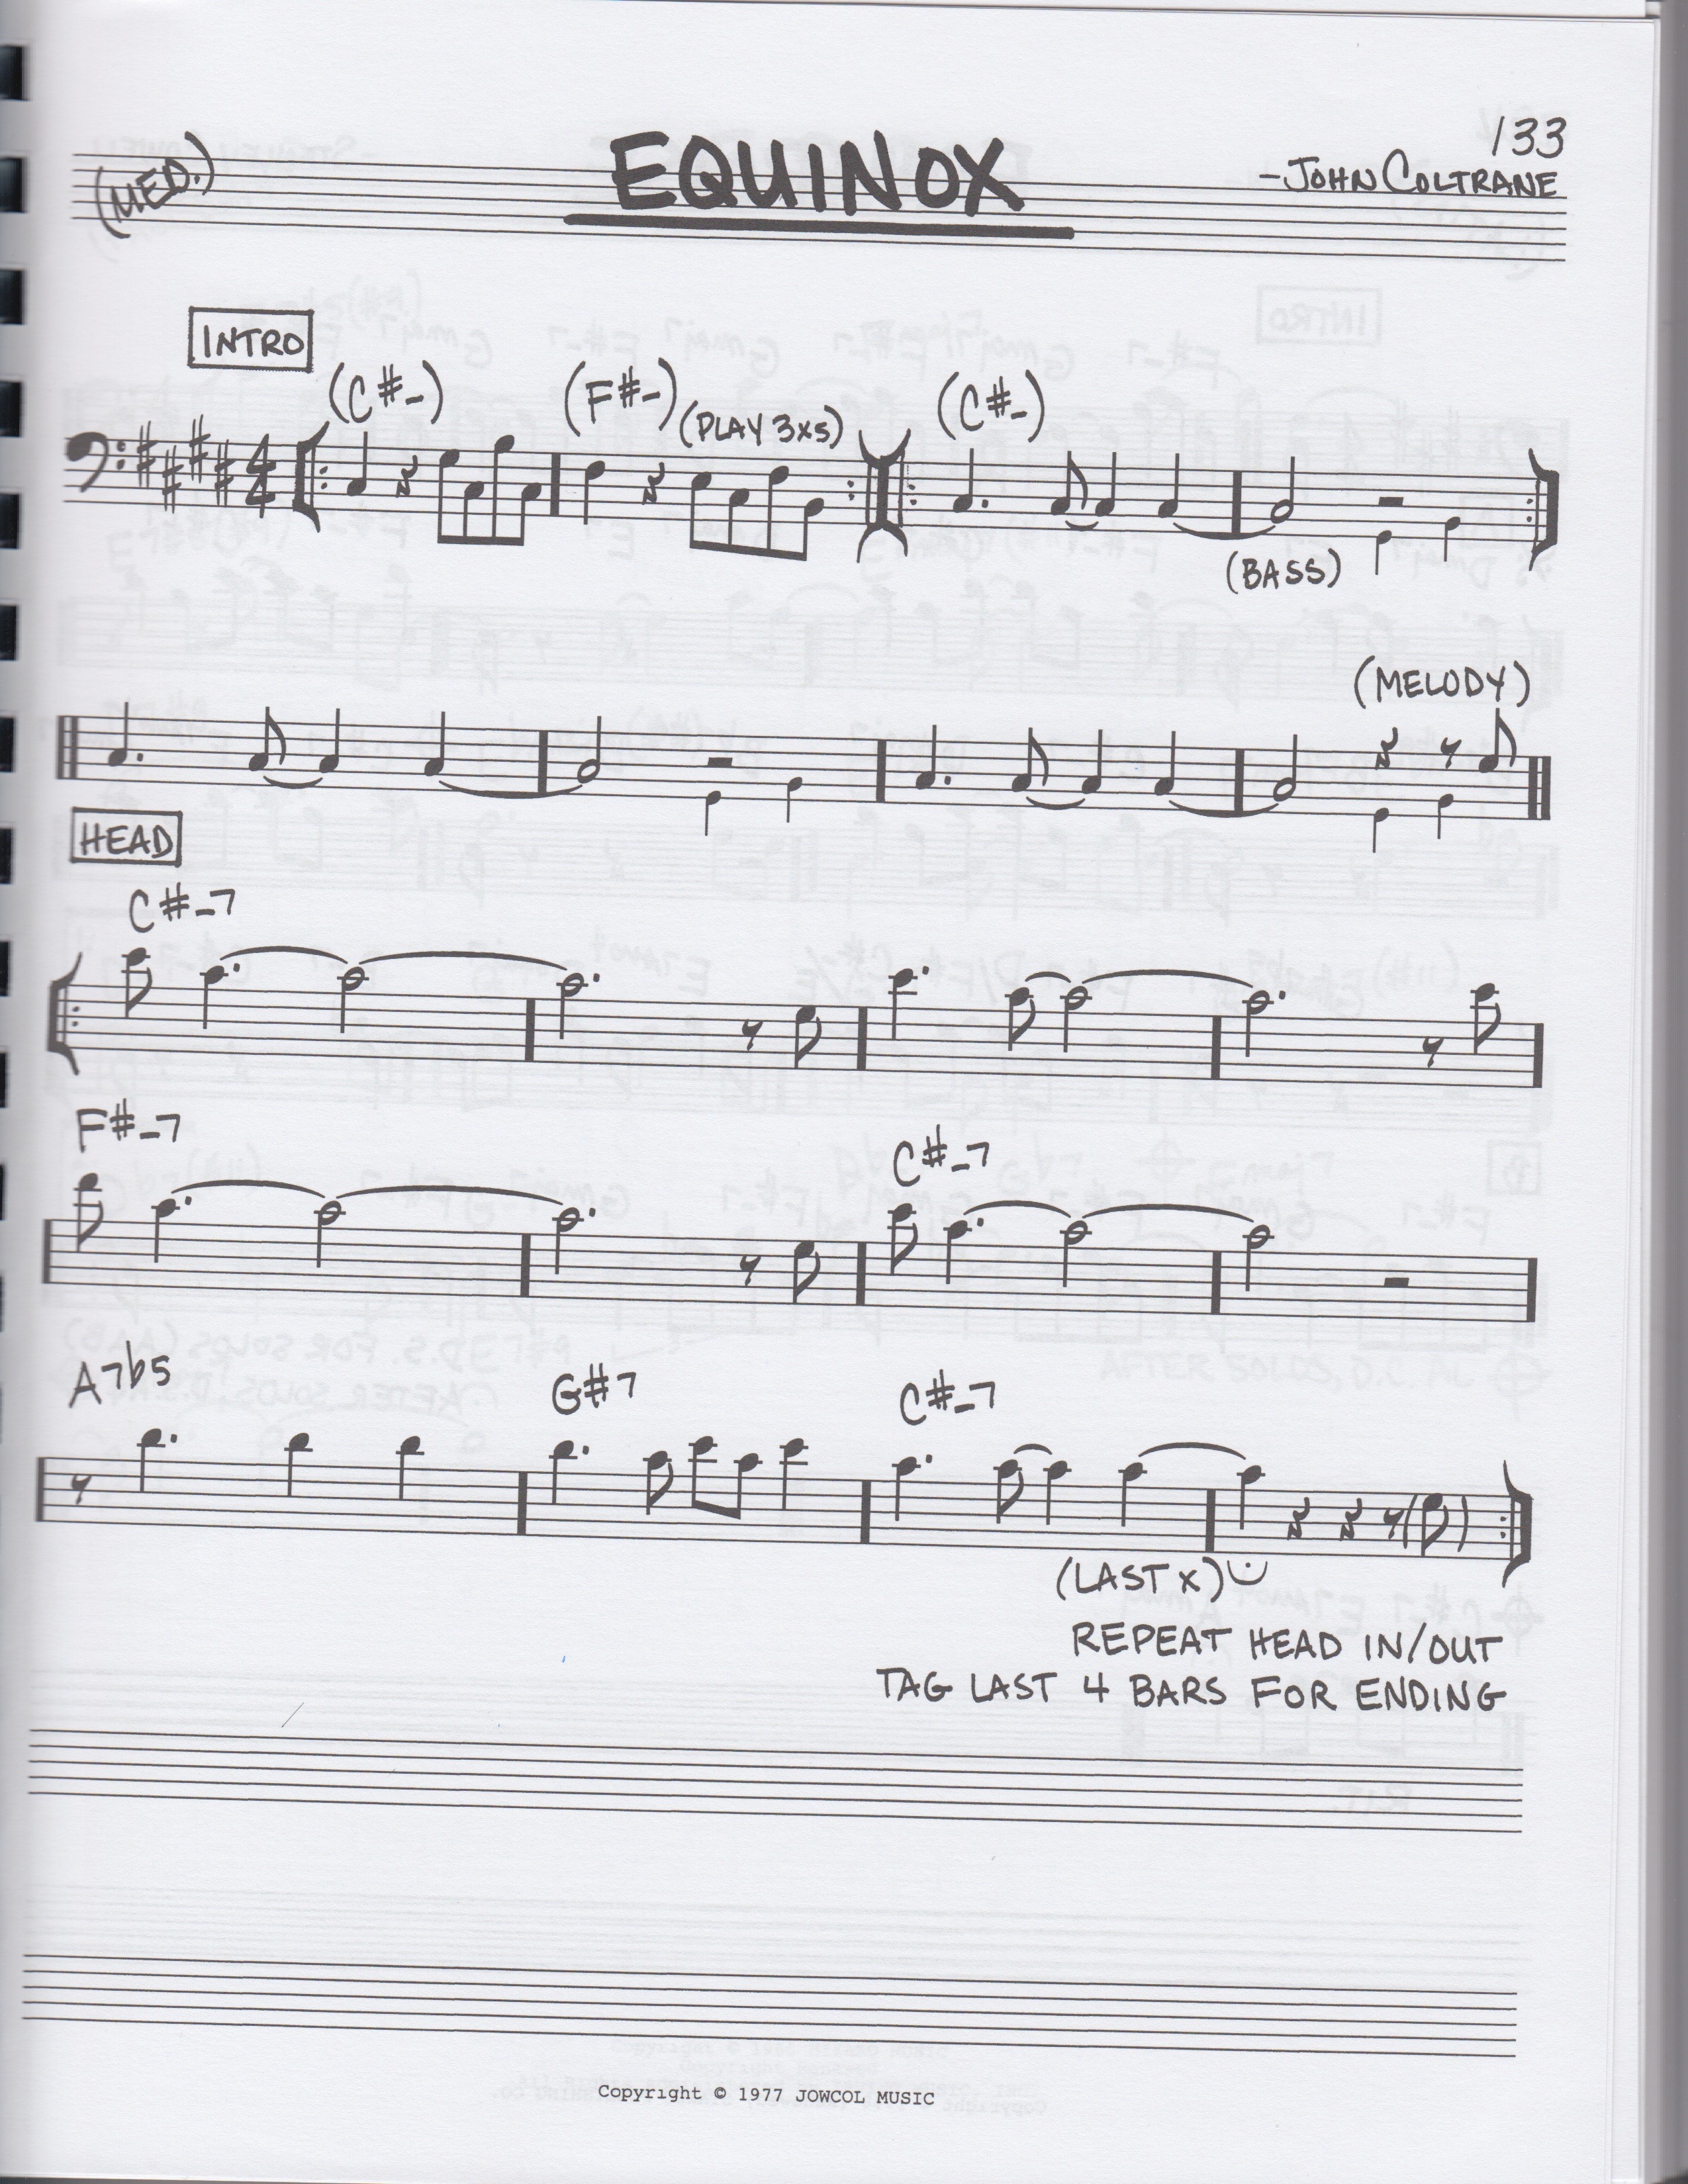 133
(MED.)
EQUINOX
-JOHN COLTRANE
INTRO
(C#-) (F#-) (PLAY 3XS) (C#-)
4/4
(BASS)
(MELODY)
HEAD
C#-7
F#-7 C#-7
A7b5 G#7 C#-7
(LAST X)
REPEAT HEAD IN/OUT
TAG LAST 4 BARS FOR ENDING
Copyright © 1977 JOWCOL MUSIC